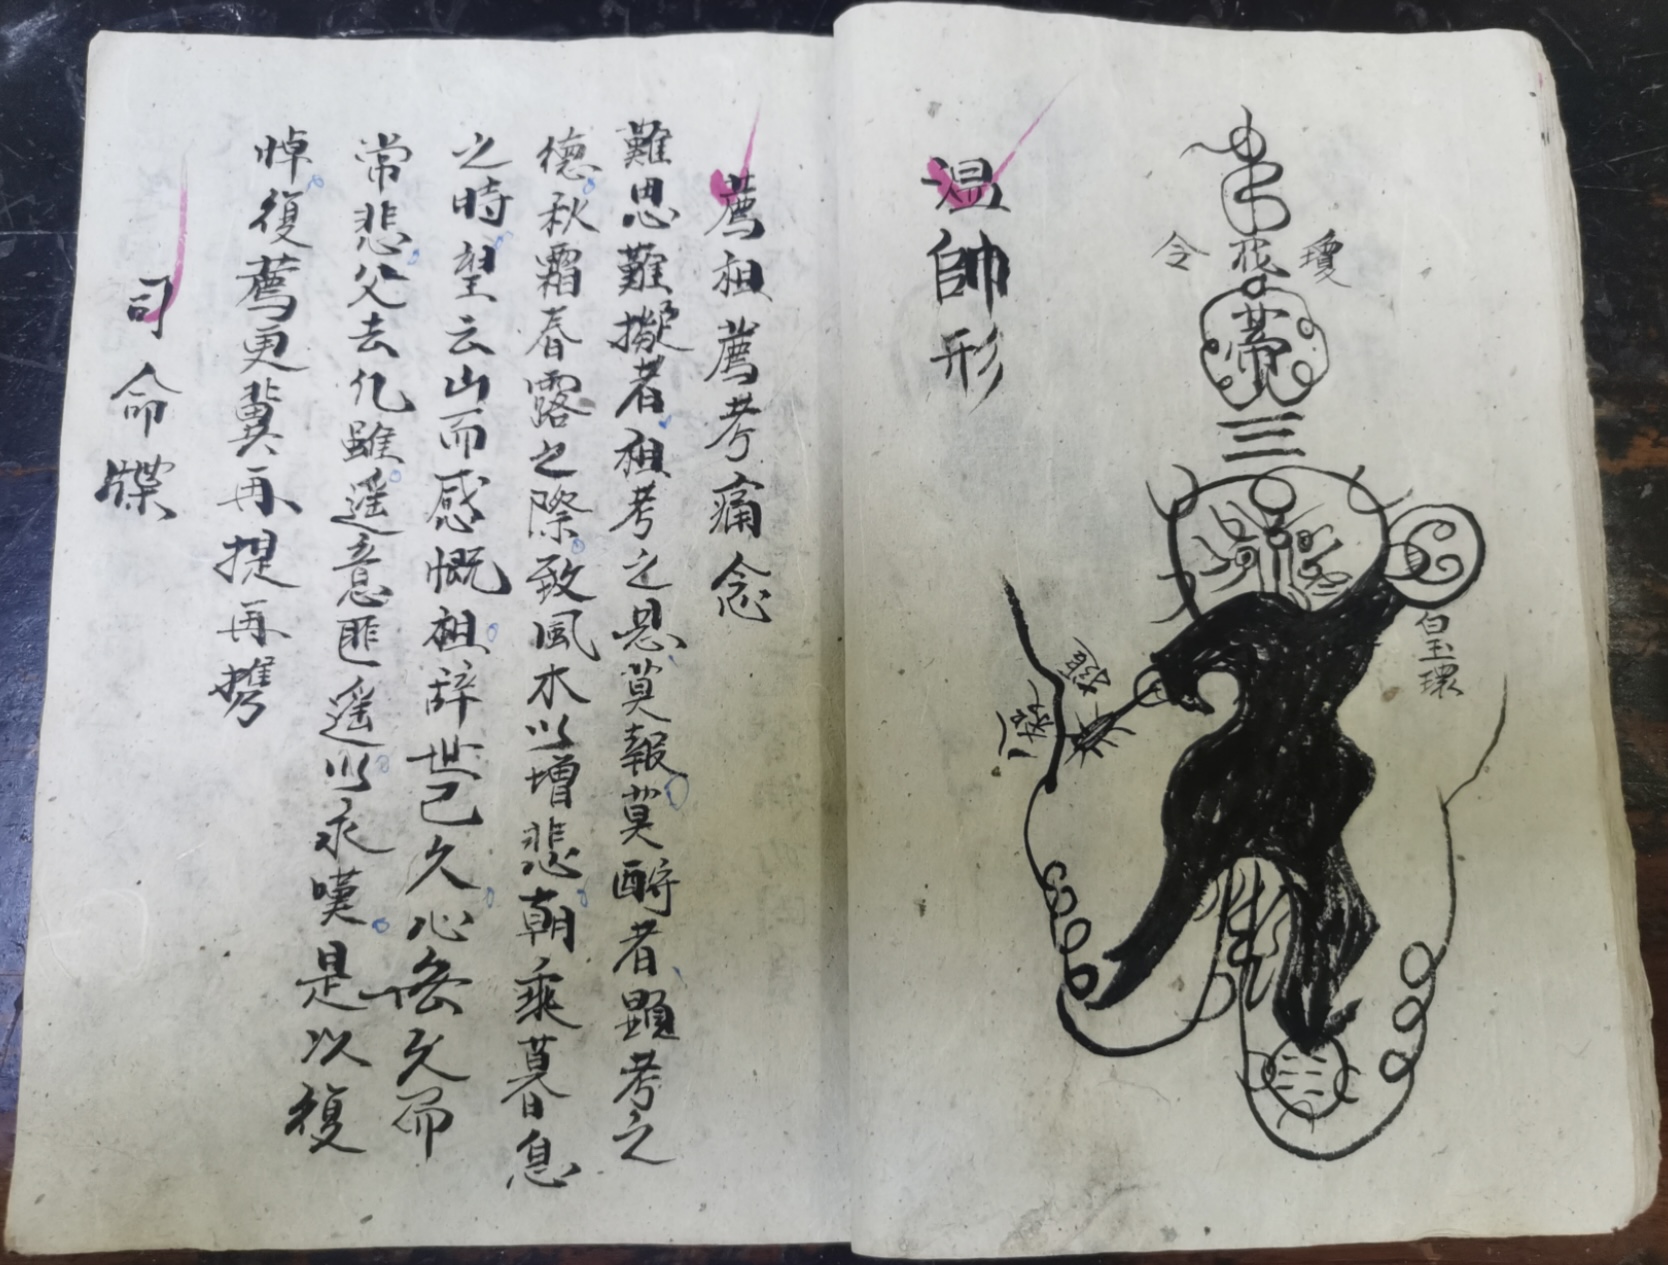 令 瓊
三
皇環
温帥形
薦祖薦考痛念
難思難擬者祖考之恩莫報莫酧者顯考之
德秋霜春露之際致風木以增悲朝乘暮息
之時望云山而感慨祖辞世已久心無久而
常悲父去化雖遥意匪遥以永嘆是以復
悼復薦更冀再提再携
司命牒